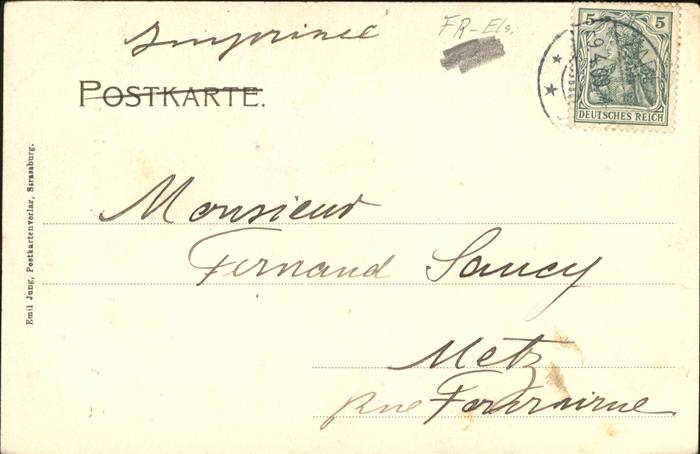 Imprimée
FR-Els.
5 5
DEUTSCHES REICH
POSTKARTE.
Emil Jung, Postkartenverlag, Strassburg.
Monsieur
Fernand Saucy
Metz
Rue